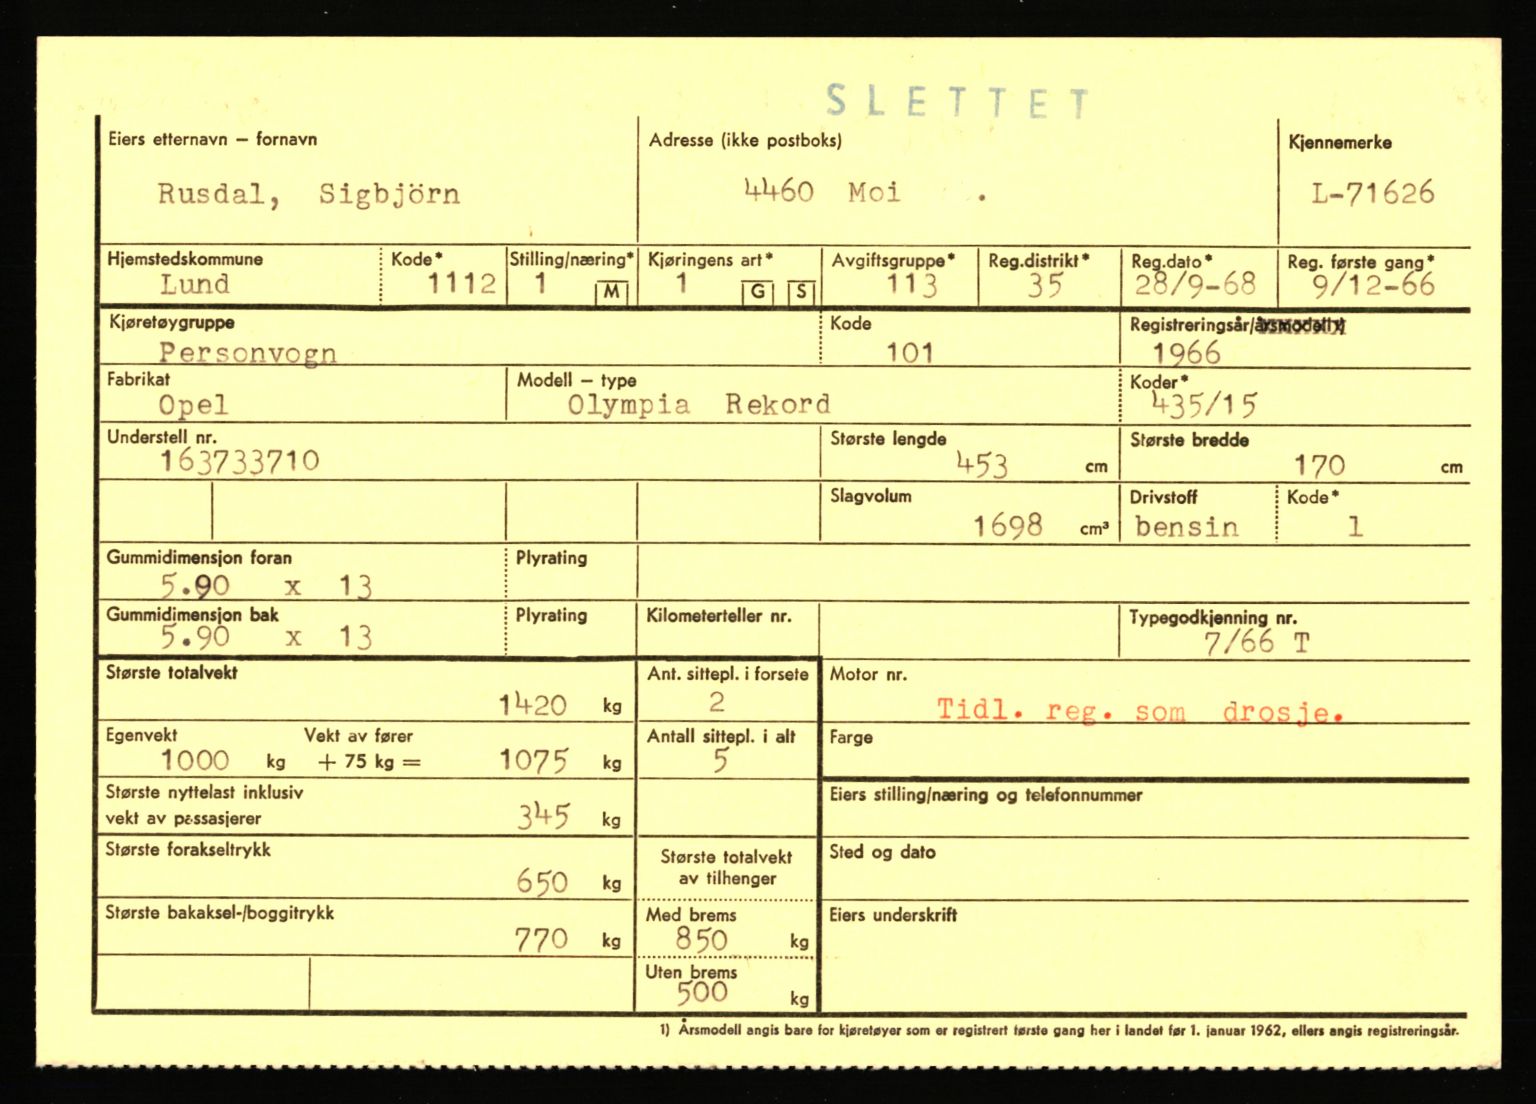 SLETTET
Eiers etternavn – fornavn Adresse (ikke postboks) Kjennemerke
Rusdal, Sigbjörn 4460 Moi . L-71626
Hjemstedskommune Kode* Stilling/næring* Kjøringens art* Avgiftsgruppe* Reg.distrikt* Reg.dato* Reg. første gang*
Lund 1112 1 M 1 G S 113 35 28/9-68 9/12-66
Kjøretøygruppe Kode Registreringsår/årsmodell¹)
Personvogn 101 1966
Fabrikat Modell – type Koder*
Opel Olympia Rekord 435/15
Understell nr. Største lengde Største bredde
163733710 453 cm 170 cm
Slagvolum Drivstoff Kode*
1698 cm³ bensin 1
Gummidimensjon foran Plyrating
5.90 x 13
Gummidimensjon bak Plyrating Kilometerteller nr. Typegodkjenning nr.
5.90 x 13 7/66 T
Største totalvekt Ant. sittepl. i forsete Motor nr.
1420 kg 2 Tidl. reg. som drosje.
Egenvekt Vekt av fører Antall sittepl. i alt Farge
1000 kg + 75 kg = 1075 kg 5
Største nyttelast inklusiv Eiers stilling/næring og telefonnummer
vekt av passasjerer 345 kg
Største forakseltrykk Største totalvekt Sted og dato
650 kg av tilhenger
Største bakaksel-/boggitrykk Med brems Eiers underskrift
770 kg 850 kg
Uten brems
500 kg
1) Årsmodell angis bare for kjøretøyer som er registrert første gang her i landet før 1. januar 1962, ellers angis registreringsår.